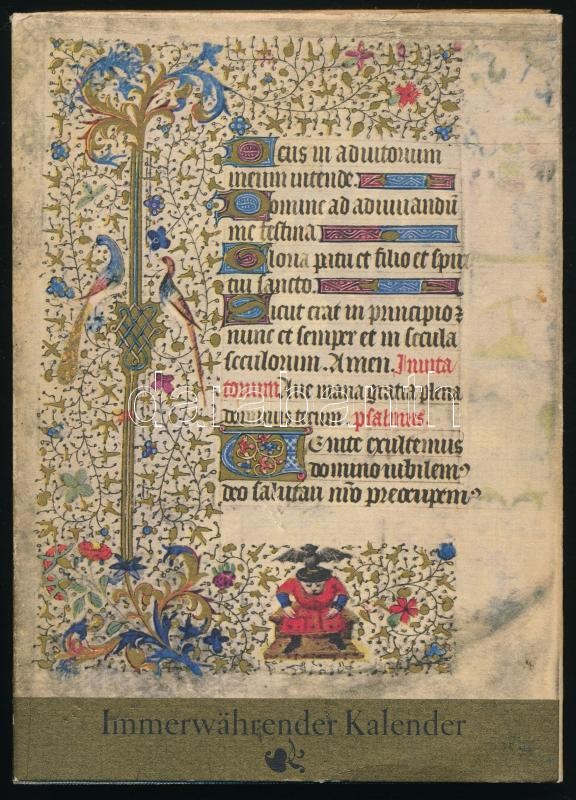 Deus in adiutorium
meum intende.
Domine ad adiuuandū
me festina
Gloria pr̄i et filio et spiri
tui sancto.
Sicut erat in principio ⁊
nunc et semper et in secula
seculorum. Amen. Inuita
torium. Aue maria gratia plena
dominus tecum. psalmus.
Uenite exultemus
domino iubilem⁹
deo salutari nr̄o preocupem⁹
darabanth
Immerwährender Kalender